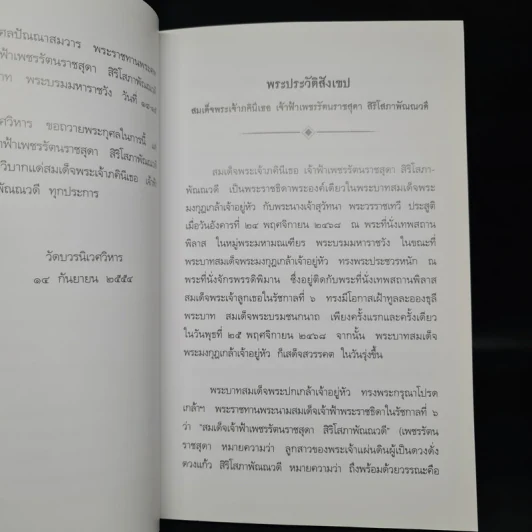 ศลปัณณาสมวาร พระราชทานพระศพ
จ้าฟ้าเพชรรัตนราชสุดา สิริโสภาพัณณวดี
าท พระบรมมหาราชวัง วันที่
ศวิหาร ขอถวายพระกุศลในการนี้
จ้าฟ้าเพชรรัตนราชสุดา สิริโสภาพัณณวดี
วิบากแด่สมเด็จพระเจ้าภคินีเธอ เจ้า
พัณณวดี ทุกประการ
วัดบวรนิเวศวิหาร
๑๔ กันยายน ๒๕๕๔
พระประวัติสังเขป
สมเด็จพระเจ้าภคินีเธอ เจ้าฟ้าเพชรรัตนราชสุดา สิริโสภาพัณณวดี
สมเด็จพระเจ้าภคินีเธอ เจ้าฟ้าเพชรรัตนราชสุดา สิริโสภา-
พัณณวดี เป็นพระราชธิดาพระองค์เดียวในพระบาทสมเด็จพระ
มงกุฎเกล้าเจ้าอยู่หัว กับพระนางเจ้าสุวัทนา พระวรราชเทวี ประสูติ
เมื่อวันอังคารที่ ๒๔ พฤศจิกายน ๒๔๖๘ ณ พระที่นั่งเทพสถาน
พิลาส ในหมู่พระมหามณเฑียร พระบรมมหาราชวัง ในขณะที่
พระบาทสมเด็จพระมงกุฎเกล้าเจ้าอยู่หัว ทรงพระประชวรหนัก ณ
พระที่นั่งจักรพรรดิพิมาน ซึ่งอยู่ติดกับพระที่นั่งเทพสถานพิลาส
สมเด็จพระเจ้าลูกเธอในรัชกาลที่ ๖ ทรงมีโอกาสเฝ้าทูลละอองธุลี
พระบาท สมเด็จพระบรมชนกนาถ เพียงครั้งแรกและครั้งเดียว
ในวันพุธที่ ๒๕ พฤศจิกายน ๒๔๖๘ จากนั้น พระบาทสมเด็จ
พระมงกุฎเกล้าเจ้าอยู่หัว ก็เสด็จสวรรคต ในวันรุ่งขึ้น
พระบาทสมเด็จพระปกเกล้าเจ้าอยู่หัว ทรงพระกรุณาโปรด
เกล้าฯ พระราชทานพระนามสมเด็จเจ้าฟ้าพระราชธิดาในรัชกาลที่ ๖
ว่า "สมเด็จเจ้าฟ้าเพชรรัตนราชสุดา สิริโสภาพัณณวดี" (เพชรรัตน
ราชสุดา หมายความว่า ลูกสาวของพระเจ้าแผ่นดินผู้เป็นดวงดั่ง
ดวงแก้ว สิริโสภาพัณณวดี หมายความว่า ถึงพร้อมด้วยวรรณะคือ